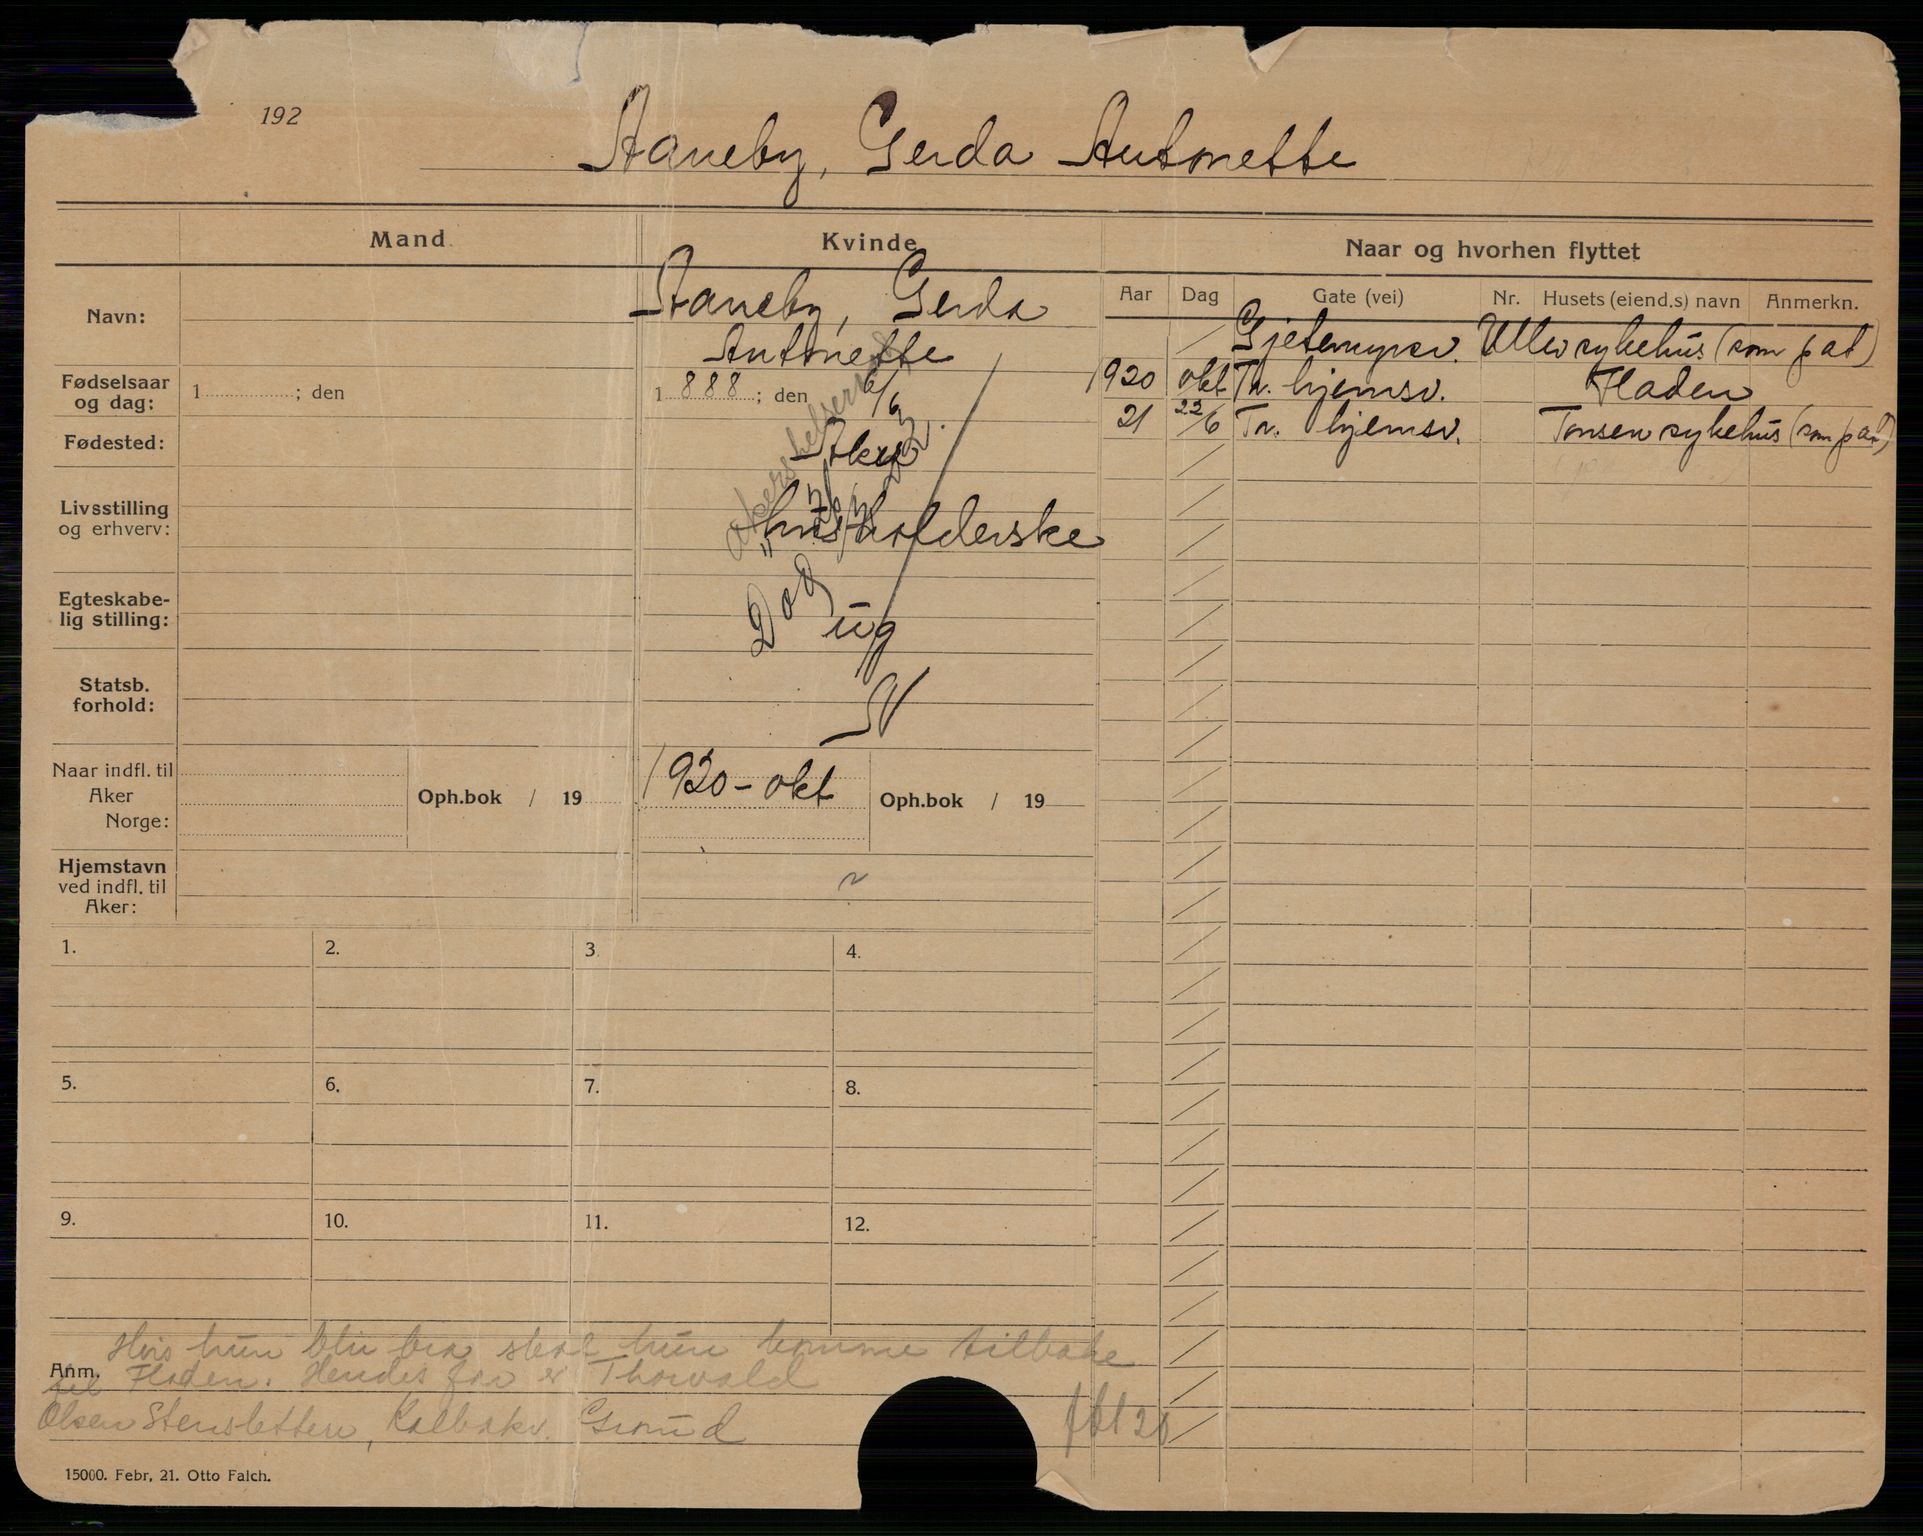 192
Aaneby, Gerda Antonette
Mand
Kvinde
Naar og hvorhen flyttet
Aar Dag Gate (vei) Nr. Husets (eiend.s) navn Anmerkn.
Navn:
Aaneby, Gerda
Antonette
Fødselsaar
og dag:
1 ; den
1 888 ; den 6/6
Fødested:
Aker
Livsstilling
og erhverv:
husholderske
Egteskabe-
lig stilling:
ug
Statsb.
forhold:
N
Død
Akershelseraad
Naar indfl. til
Aker
Norge:
Oph.bok / 19
1920 - okt
Oph.bok / 19
Hjemstavn
ved indfl. til
Aker:
Gjetemyrsv. Ullev sykehus (som pat)
1920 okt Tr. hjemsv. Fladen
21 22/6 Tr. hjemsv. Tonsen sykehus (som pat)
1. 2. 3. 4.
5. 6. 7. 8.
9. 10. 11. 12.
Anm.
Hvis hun blir bra skal hun komme tilbake
til Fladen. Hendes far er Thorvald
Olsen Stensletten, Kalbakv. Grorud
15000. Febr, 21. Otto Falch.